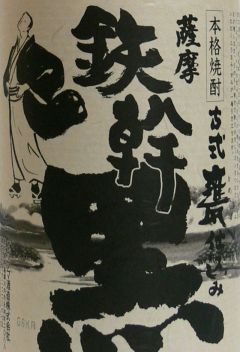 本格焼酎
古式甕仕込み
薩摩
鉄幹
黒